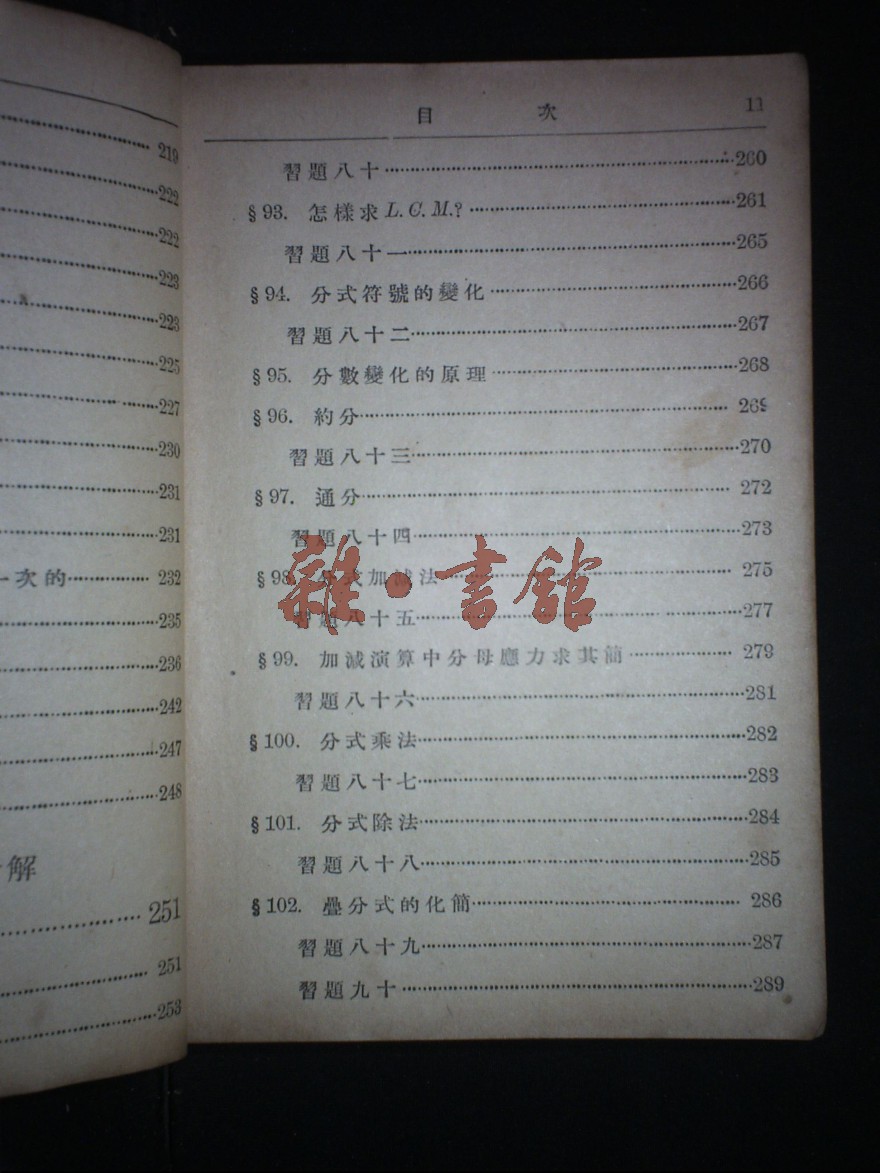 219
222
222
223
223
225
227
230
231
231
一次的 232
235
236
242
247
248
解
251
251
253
目 次 11
習題八十 260
§93. 怎樣求 L.C.M.? 261
習題八十一 265
§94. 分式符號的變化 266
習題八十二 267
§95. 分數變化的原理 268
§96. 約分 269
習題八十三 270
§97. 通分 272
習題八十四 273
§98. 分式加減法 275
習題八十五 277
雜·書館
§99. 加減演算中分母應力求其簡 279
習題八十六 281
§100. 分式乘法 282
習題八十七 283
§101. 分式除法 284
習題八十八 285
§102. 疊分式的化簡 286
習題八十九 287
習題九十 289